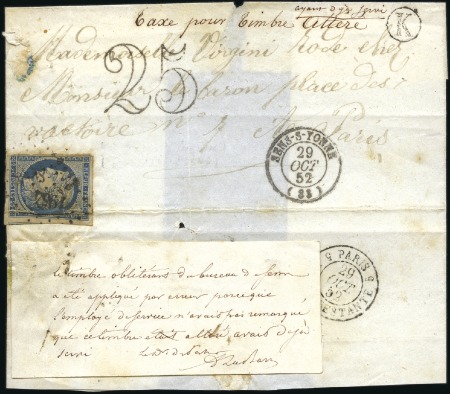 ayant déja servi
Taxe pour Timbre
K
25
Mademoiselle Virgini Rose chez
Monsieur le baron place des
victoire n° 4 A Paris
SENS-S-YONNE
29
OCT
52
(88)
PARIS
29
OCT
52
RESTANTE
le timbre oblitérans du bureau de Sens
a été appliqué par erreur parceque
l'employé de service n'avais pas remarqué
que ce timbre était altéré avais deja
servi